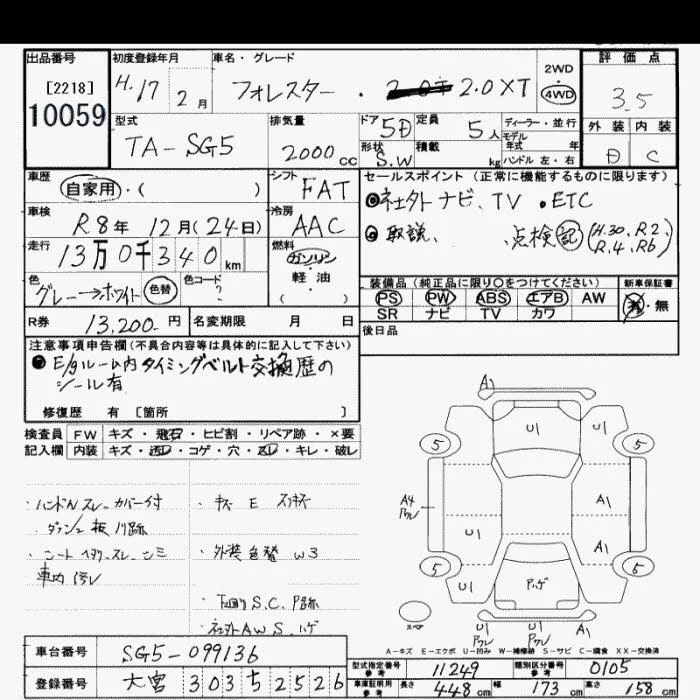 出品番号 初度登録年月 車名・グレード 2WD 4WD 評価点
[2218]
10059
H.17 2月 フォレスター・ 2.0XT 3.5
型式 排気量 ドア 定員 ディーラー・並行 外装 内装
TA-SG5 2000cc 5D 5人 モデル年式 年
形状 S.W 積載 kg ハンドル 左・右 D C
車歴 シフト セールスポイント(正常に機能するものに限ります)
自家用・( ) FAT ◉社外ナビ、TV ●ETC
車検 冷房 ◉取説、 点検記(H.30、R2、
R8年 12月(24日) AAC R.4、R6)
走行 燃料
13万0千340km ガソリン・軽油 ( )
色 色コード 装備品(純正品に限り○をつけてください) 新車保証書
グレー→ホワイト 色替 ? PS PW ABS エアB AW 有・無
SR ナビ TV カワ
R券 13,200-円 名変期限 月 日 後日品
注意事項申告欄(不具合内容等は具体的に記入して下さい)
●E/gルーム内タイミングベルト交換歴の
シール有
修復歴 有 [箇所 ]
検査員 FW キズ・飛石・ヒビ割・リペア跡・×要
記入欄 内装 キズ・汚レ・コゲ・穴・スレ・キレ・破レ
A1
U1 U1
5 5
A4 A1
U1 A1
5 5
U1 U1
A1
U1 U1
・ハンドルスレ、カバー付 ・キズ E スリキズ
・外装色替 W3
車内汚レ
・下回りS.C、P跡
・社外AW S.ハゲ
スペア
A-キズ E-エクボ U-凹み W-補修跡 S-サビ C-腐食 XX-交換済
車台番号 SG5-099136
登録番号 大宮 303 5 2526
型式指定番号 参考 11249 類別区分番号 参考 0105
車庫証明用 参考 長さ 448cm 幅 173cm 高さ 158cm